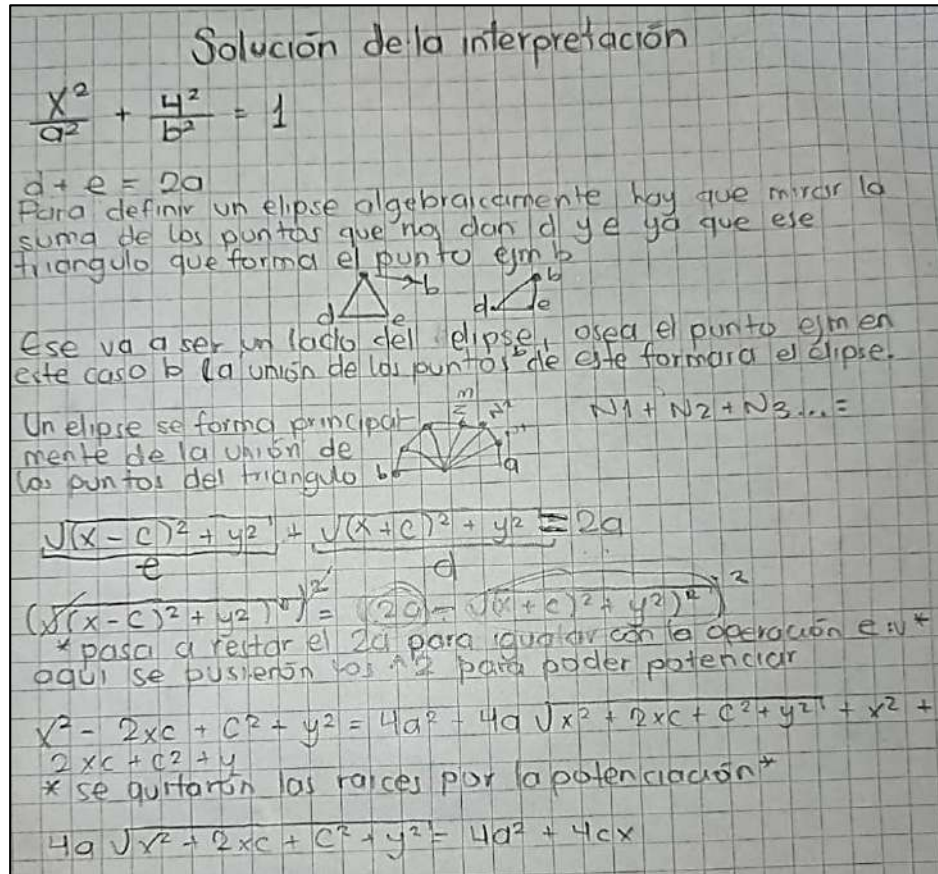 Solución de la interpretación
x²/a² + y²/b² = 1
d + e = 2a
Para definir un elipse algebraicamente hay que mirar la
suma de los puntos que nos dan d y e ya que ese
triangulo que forma el punto ejm b
b b
d e d e
Ese va a ser un lado del elipse, osea el punto ejm en
este caso b la unión de los puntos de este formara el elipse.
Un elipse se forma principal- m N1 + N2 + N3... =
mente de la unión de
los puntos del triangulo b a
√(x - c)² + y² + √(x + c)² + y² = 2a
e d
(√(x-c)² + y²)² = (2a - √(x+c)² + y²)²
*pasa a restar el 2a para igualar con la operación e *
aqui se pusierón los ^2 para poder potenciar
x² - 2xc + c² + y² = 4a² - 4a √x² + 2xc + c² + y² + x² +
2xc + c² + y
* se quitarón las raices por la potenciación*
4a √x² + 2xc + c² + y² = 4a² + 4cx